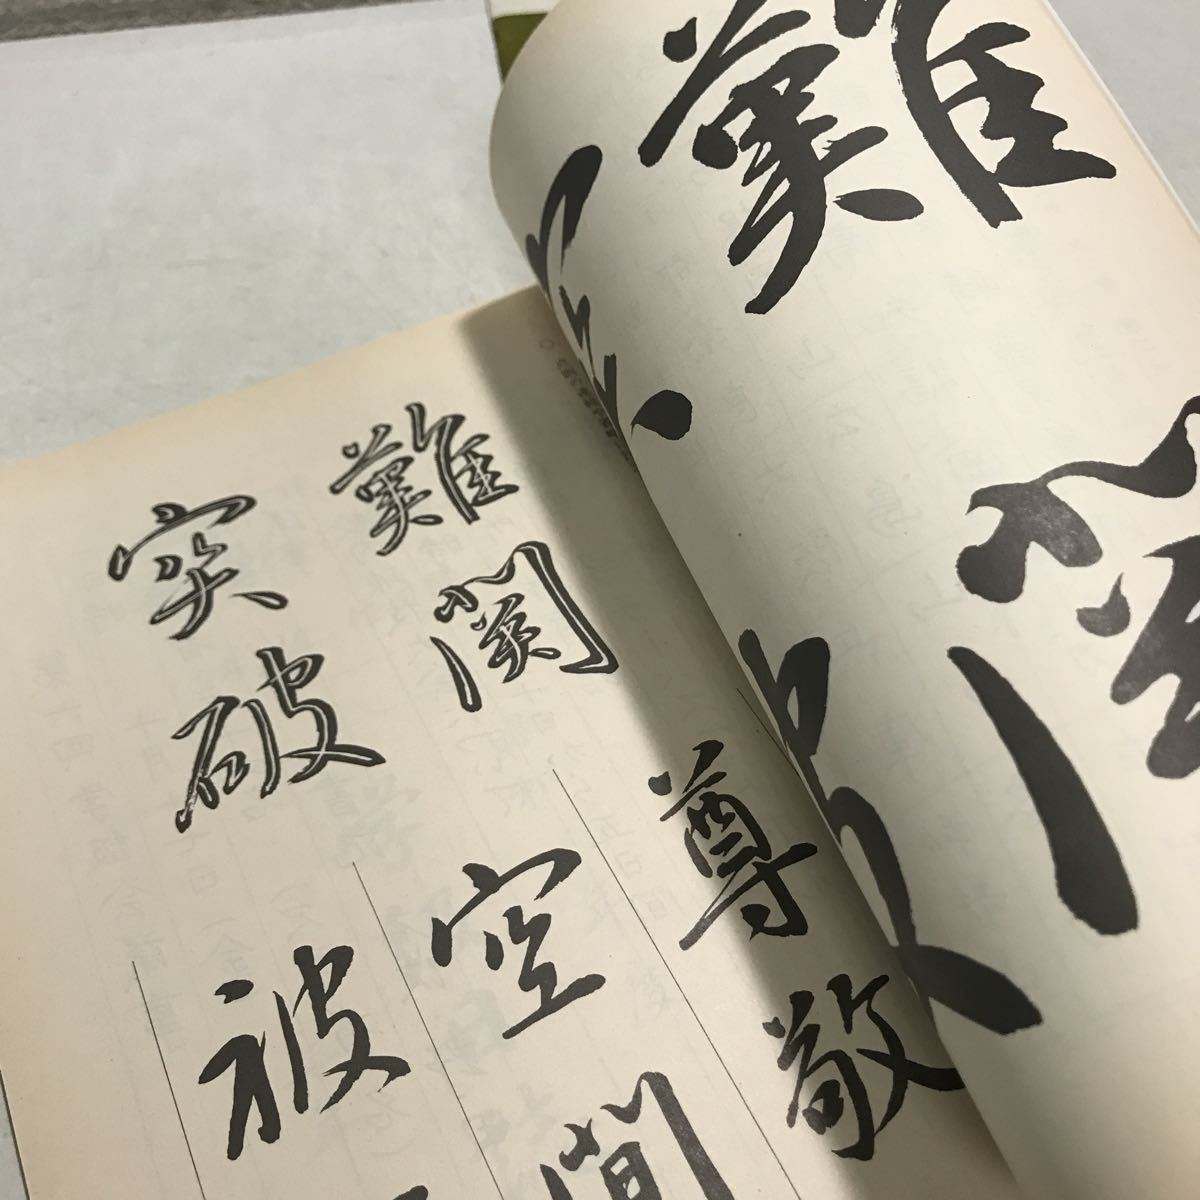 難関
難関
突破
尊敬
空間
被